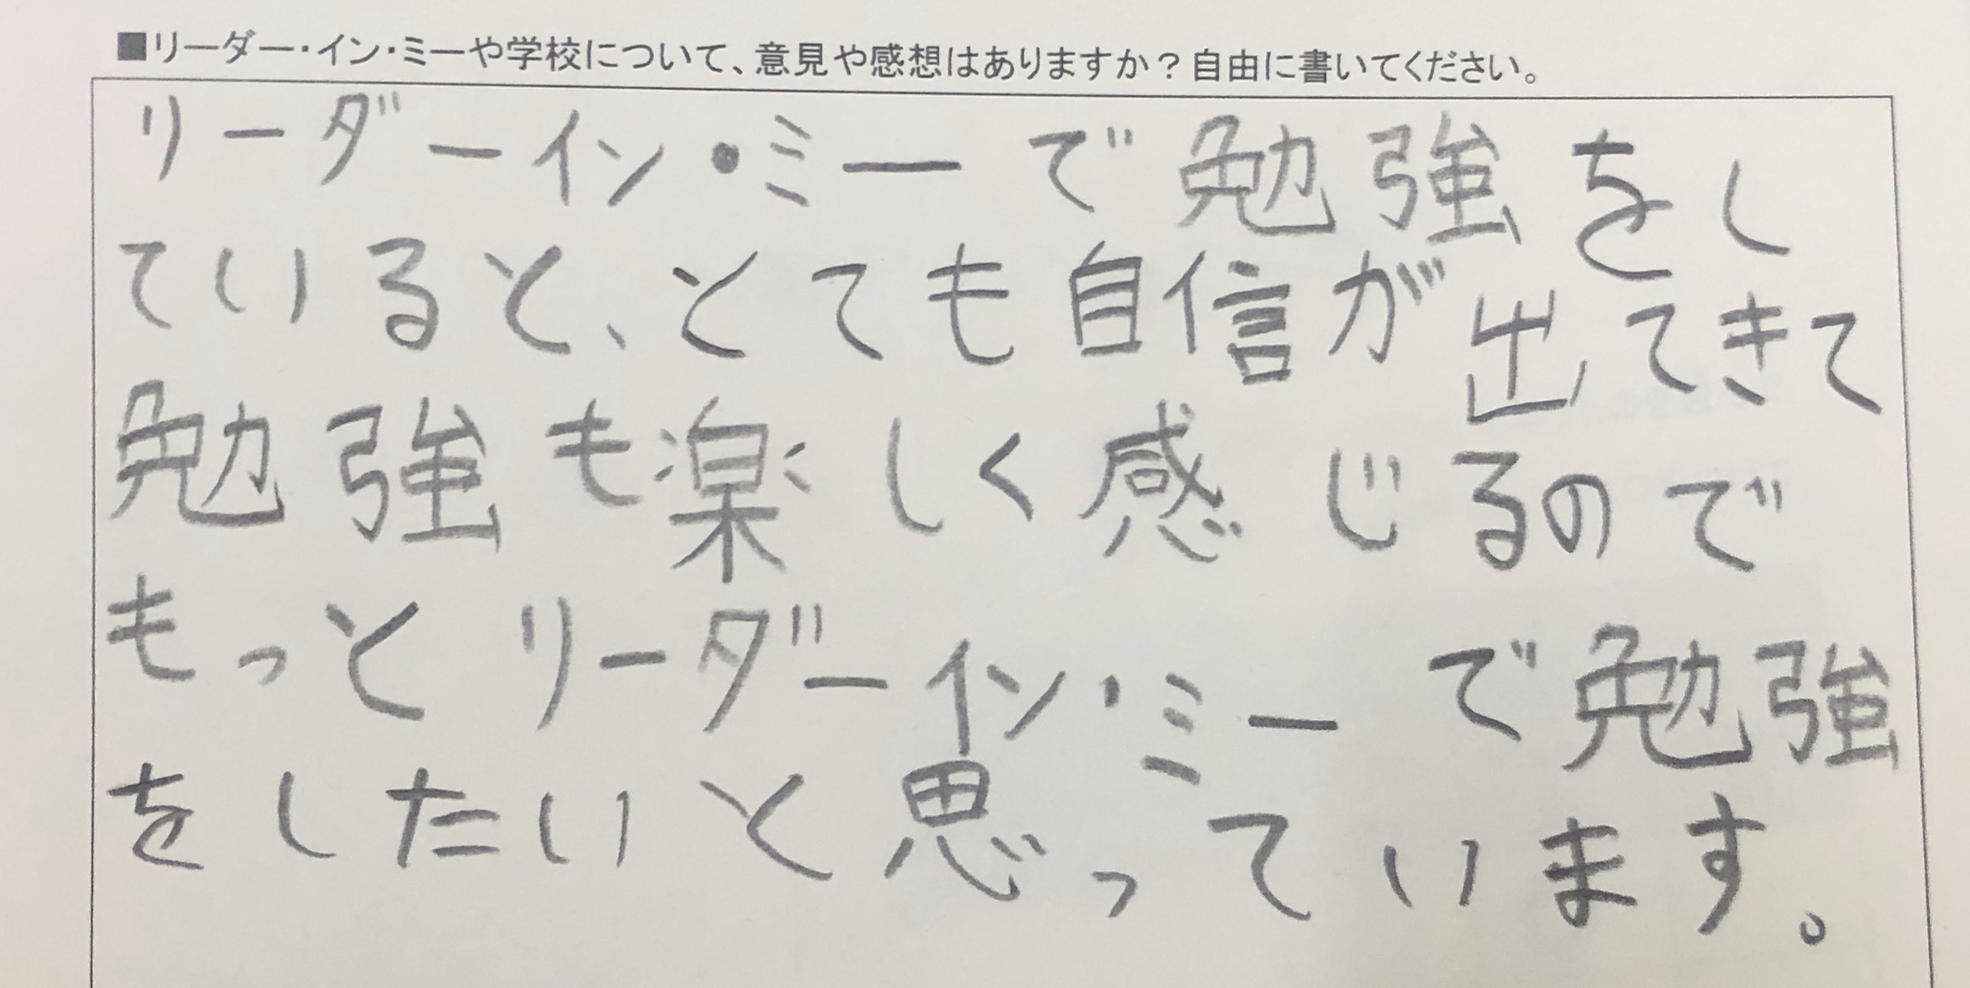 ■リーダー・イン・ミーや学校について、意見や感想はありますか？自由に書いてください。
リーダーイン・ミーで勉強をし
ていると、とても自信が出てきて
勉強も楽しく感じるので
もっとリーダーイン・ミーで勉強
をしたいと思っています。